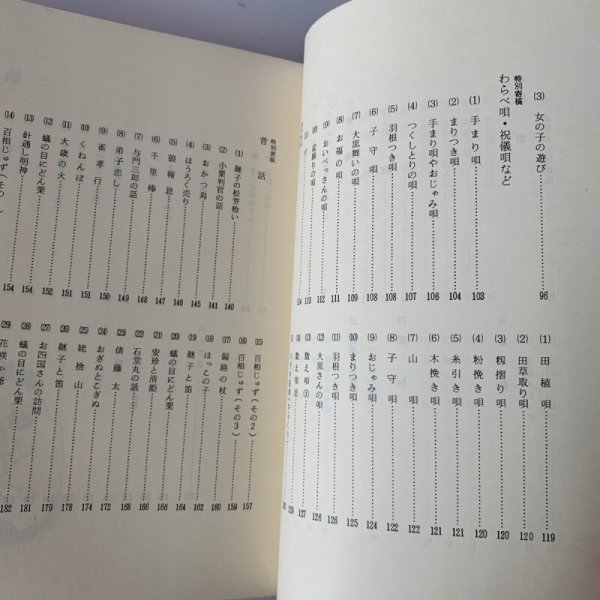 (3) 女の子の遊び 96
特別寄稿
わらべ唄・祝儀唄など
(1) 手まり唄 103
(2) まりつき唄 104
(3) 手まり唄やおじゃみ唄 106
(4) つくしとりの唄 107
(5) 羽根つき唄 108
(6) 子守唄 108
(7) 大黒舞いの唄 109
(8) お福の唄 111
(9) おいべっさんの唄 112
(10) 盆踊りの唄 113
114
(1) 田植唄 119
(2) 田草取り唄 120
(3) 籾摺り唄 120
(4) 粉挽き唄 120
(5) 糸引き唄 121
(6) 木挽き唄 121
(7) 山唄 122
(8) 子守唄 122
(9) おじゃみ唄 124
(10) まりつき唄 125
(11) 羽根つき唄 126
(12) 大黒さんの唄 126
(13) 数え唄 127
数え唄 129
特別寄稿
昔話
(1) 継子の松笠拾い 140
(2) 小栗判官の話 141
(3) おかつ鳥 145
(4) ほうろく売り 146
(5) 狼報恩 146
(6) 千里棒 147
(7) 与門三郎の話 148
(8) 弟子恋し 149
(9) 雀孝行 150
(10) くねんぼ 151
(11) 大歳の火 151
(12) 蟻の目にどん栗 152
(13) 針通し明神 154
(14) 百相じゅず(その 154
(15) 百相じゅず(その2) 157
(16) 百相じゅず(その3) 159
(17) 偏路の杖 160
(18) はっこの子 162
(19) 継子と笛 164
(20) 蟻の目にどん栗 166
(21) 安珍と清姫 166
(22) 石堂丸の話 168
(23) 俵藤太 172
(24) おぎぬとこぎぬ 174
(25) 姥捨山 178
(26) 継子と笛 179
(27) 蟻の目にどん栗 181
(28) お四国さんの訪問 181
(29) 花咲か爺 182